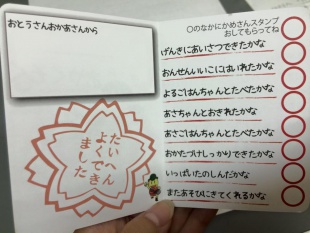 おとうさんおかあさんから
たいへん
よくでき
ました
○のなかにかめさんスタンプ
おしてもらってね
げんきにあいさつできたかな
おんせんいいこにはいれたかな
よるごはんちゃんとたべたかな
あさちゃんとおきれたかな
あさごはんちゃんとたべたかな
おかたづけしっかりできたかな
いっぱいたのしんだかな
またあそびにきてくれるかな